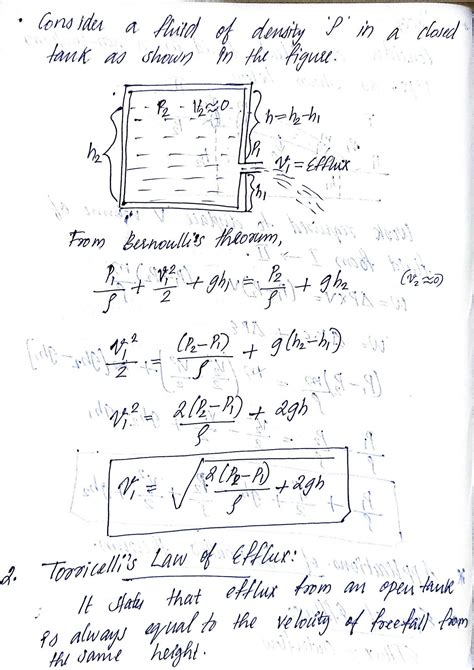 • Consider a fluid of density 'ρ' in a closed
tank as shown in the figure.
P₂ V₂≈0
h=h₂-h₁
h₂
P₁
V₁=Efflux
h₁
From Bernoulli's theorum,
P₁/ρ + V₁²/2 + gh₁ = P₂/ρ + gh₂ (V₂≈0)
V₁²/2 = (P₂-P₁)/ρ + g(h₂-h₁)
V₁² = 2(P₂-P₁)/ρ + 2gh
V₁ = √(2(P₂-P₁)/ρ + 2gh)
2. Torricelli's Law of Efflux:
It states that efflux from an open tank
is always equal to the velocity of freefall from
the same height.